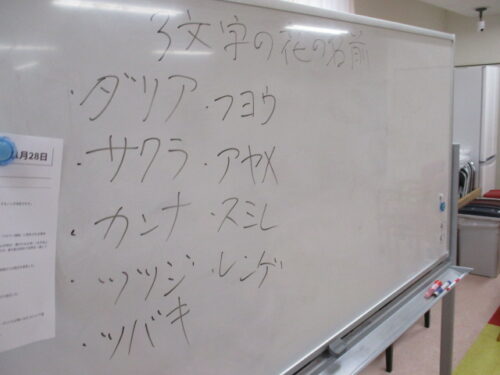 3文字の花の名前
・ダリア ・フヨウ
・サクラ ・アヤメ
・カンナ ・スミレ
・ツツジ ・レンゲ
・ツバキ
月28日